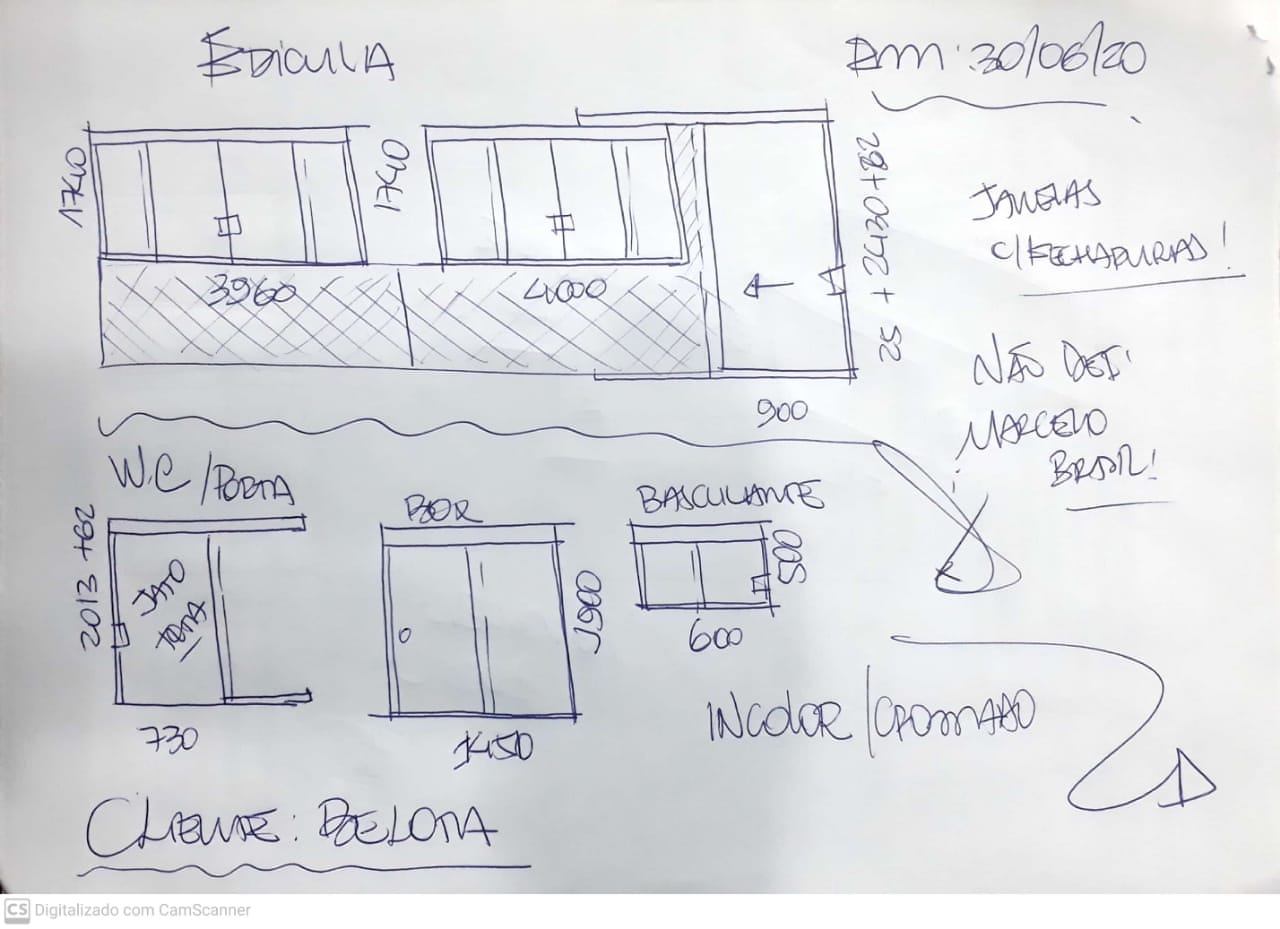 EDICULA
EM: 30/06/20
1740
1740
25 + 2430 + 82
JANELAS
C/FECHADURAS!
3960
4000
NÃO DEI:
900
MARCELO
BRASIL!
W.C / PORTA
BOX
BASCULANTE
2013 + 62
JATO
500
1900
600
INCOLOR / CROMADO
730
1450
CLIENTE:
CS Digitalizado com CamScanner